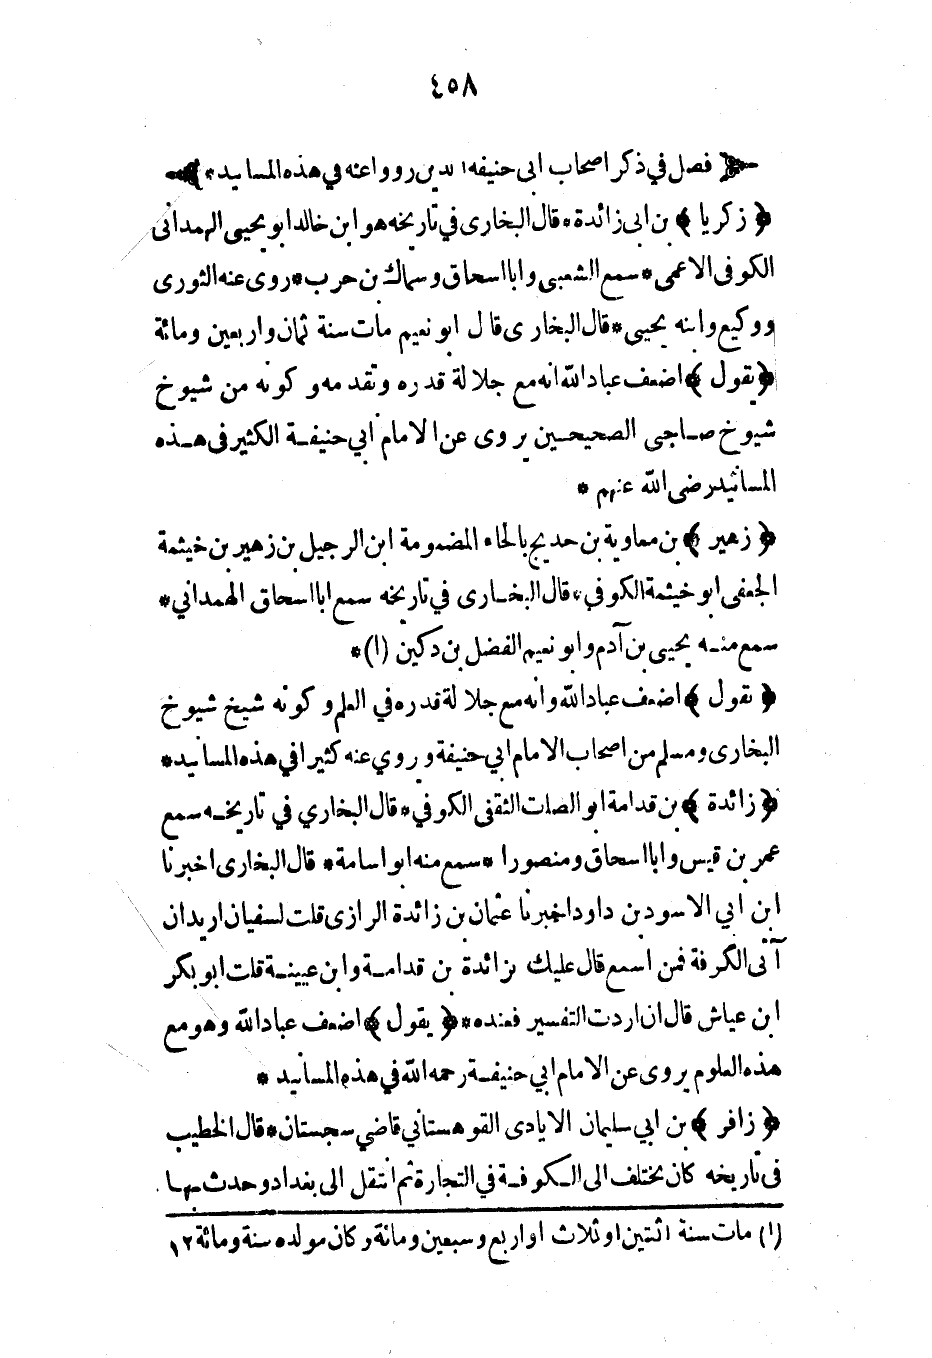 ٤٥٨
﴿ فصل في ذكر اصحاب ابى حنيفه الذين رووا عنه في هذه المسانيد ﴾
﴿ زكريا ﴾ بن ابى زائدة * قال البخارى في تاريخه هو ابن خالد ابو يحيى الهمدانى
الكوفى الاعمى * سمع الشعبى وابا اسحاق وسماك بن حرب * روى عنه الثورى
ووكيع وابنه يحيى * قال البخارى قال ابو نعيم مات سنة ثمان واربعين ومائة
﴿ يقول ﴾ اضعف عباد الله انه مع جلالة قدره وتقدمه وكونه من شيوخ
شيوخ صاحبى الصحيحين يروى عن الامام ابي حنيفة الكثير فى هذه
المسانيد رضى الله عنهم *
﴿ زهير ﴾ بن معاوية بن حديج بالحاء المضمومة ابن الرجيل بن زهير بن خيثمة
الجعفى ابو خيثمة الكوفي * قال البخارى في تاريخه سمع ابا اسحاق الهمداني *
سمع منه يحيى بن آدم وابو نعيم الفضل بن دكين (١) *
﴿ يقول ﴾ اضعف عباد الله وانه مع جلالة قدره في العلم وكونه شيخ شيوخ
البخارى ومسلم من اصحاب الامام ابي حنيفة وروي عنه كثيرا في هذه المسانيد *
﴿ زائدة ﴾ بن قدامة ابو الصلت الثقفى الكوفي * قال البخاري في تاريخه سمع
عمر بن قيس وابا اسحاق ومنصورا * سمع منه ابو اسامة * قال البخارى اخبرنا
ابن ابي الاسود بن داود اخبرنا عثمان بن زائدة الرازى قلت لسفيان اريد ان
آتى الكوفة فمن اسمع قال عليك بزائدة بن قدامة وابن عيينة قلت ابو بكر
ابن عياش قال ان اردت التفسير فعنده * ﴿ يقول ﴾ اضعف عباد الله وهو مع
هذه العلوم يروى عن الامام ابي حنيفة رحمه الله في هذه المسانيد *
﴿ زافر ﴾ بن ابي سليمان الايادى القوهستاني قاضي سجستان * قال الخطيب
فى تاريخه كان يختلف الى الكوفة في التجارة ثم انتقل الى بغداد وحدث بها
(١) مات سنة اثنتين او ثلاث او اربع وسبعين ومائة وكان مولده سنة ومائة ١٢